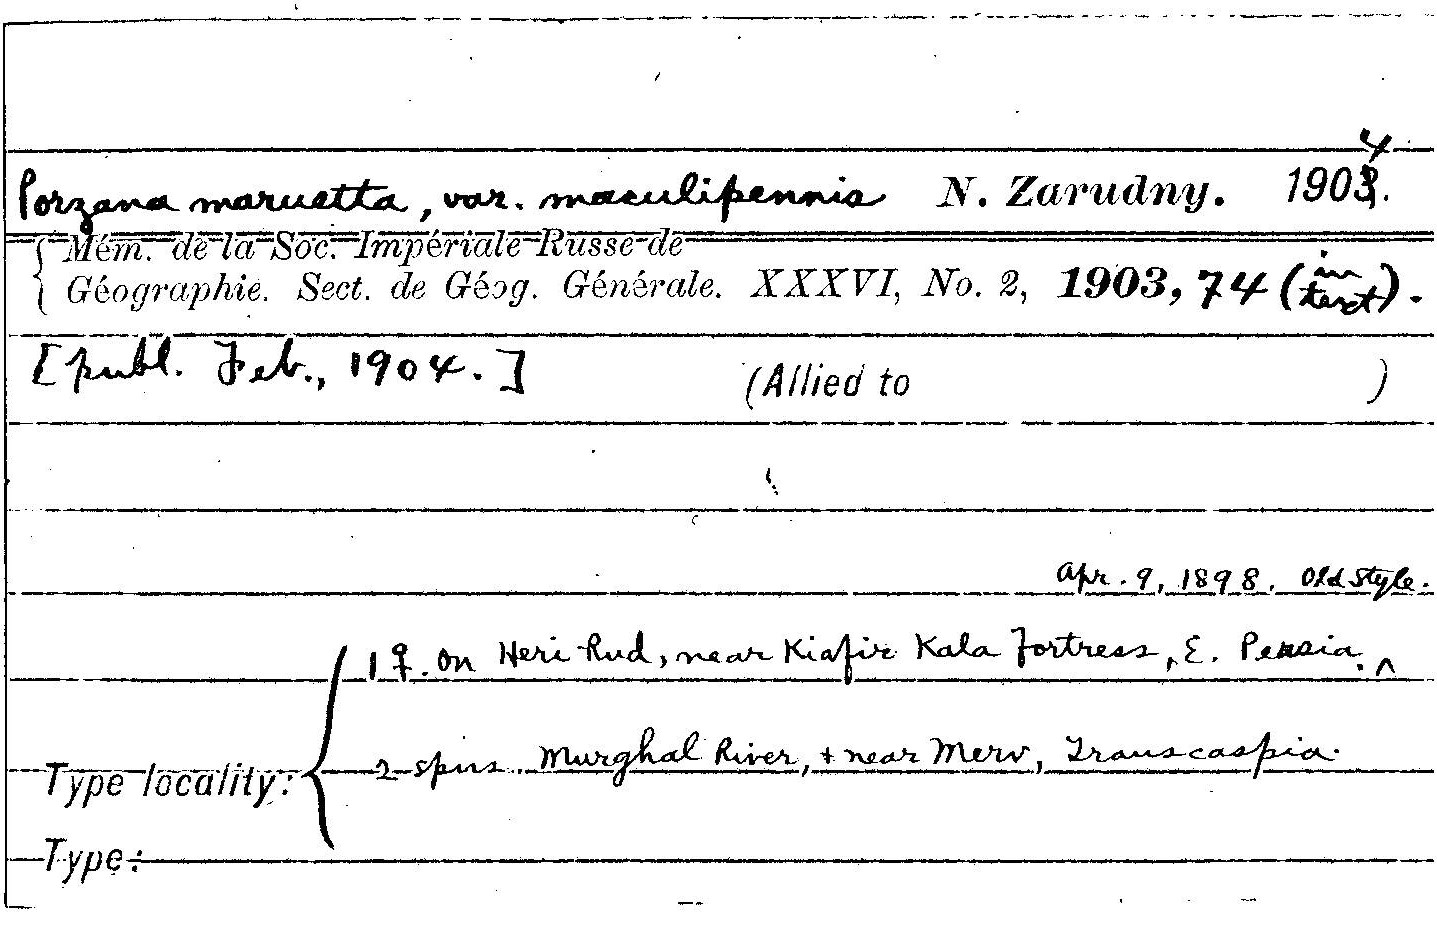 Porzana maruetta, var. maculipennis N. Zarudny. 1904.
Mém. de la Soc. Impériale Russe de
Géographie. Sect. de Géog. Générale. XXXVI, No. 2, 1903, 74 (in text).
[publ. Feb., 1904.] (Allied to )
Apr. 9, 1898. Old Style.
1 ♀. on Heri-Rud, near Kiafir Kala Fortress, E. Persia. ^
Type locality: { 2 spms. Murghal River, + near Merv, Transcaspia.
Type: